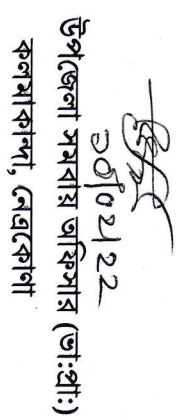 ১৭/০২/২২
উপজেলা সমবায় অফিসার (ভাঃপ্রাঃ)
কলমাকান্দা, নেত্রকোণা